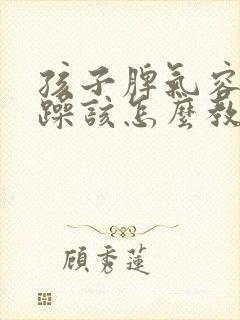 孩子脾氣容
躁該怎麼教
顧秀蓮